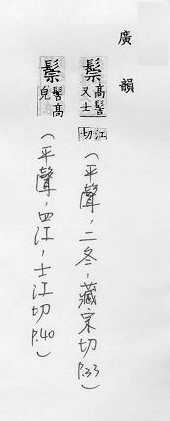 廣韻
鬃 高髻又士江切(平聲,二冬,藏宗切P.33)
鬃 髻高皃(平聲,四江,士江切P.40)